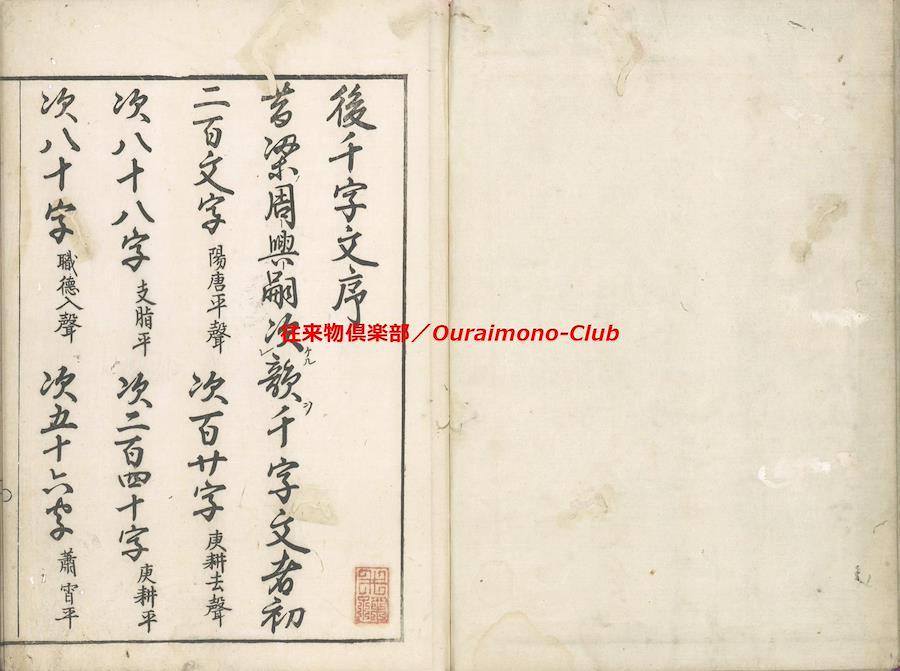 後千字文序
昔梁周興嗣次韻千字文者初
二百文字 陽唐平聲 次百廿字 庚耕去聲
次八十八字 支脂平 次二百四十字 庚耕平
次八十字 職德入聲 次五十六字 蕭宵平
往来物倶楽部／Ouraimono-Club